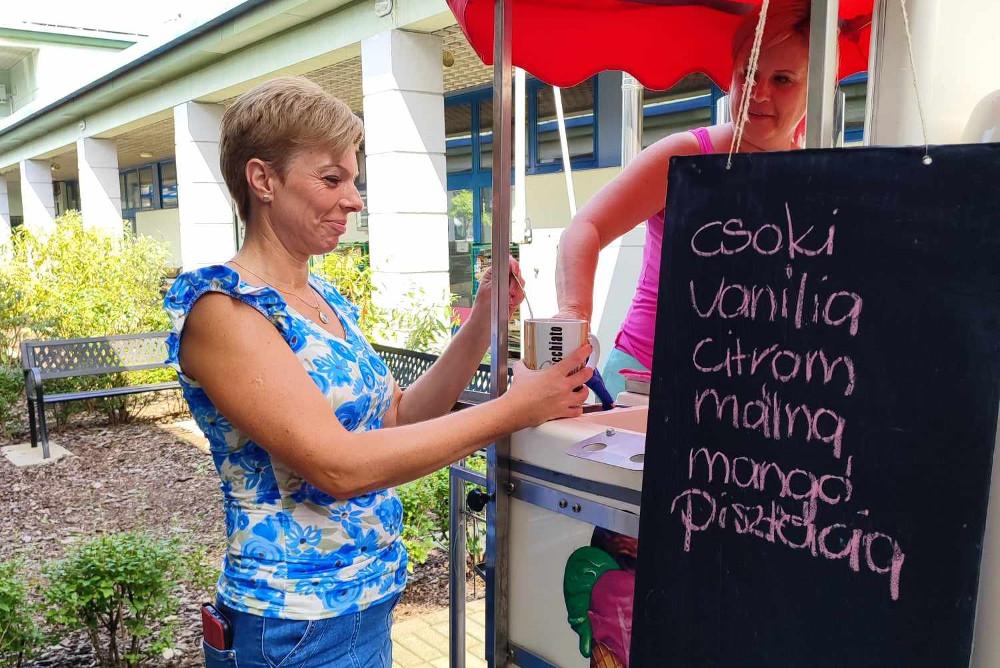 cchiato
csoki
vanilia
citrom
málna
mangó
pisztácia